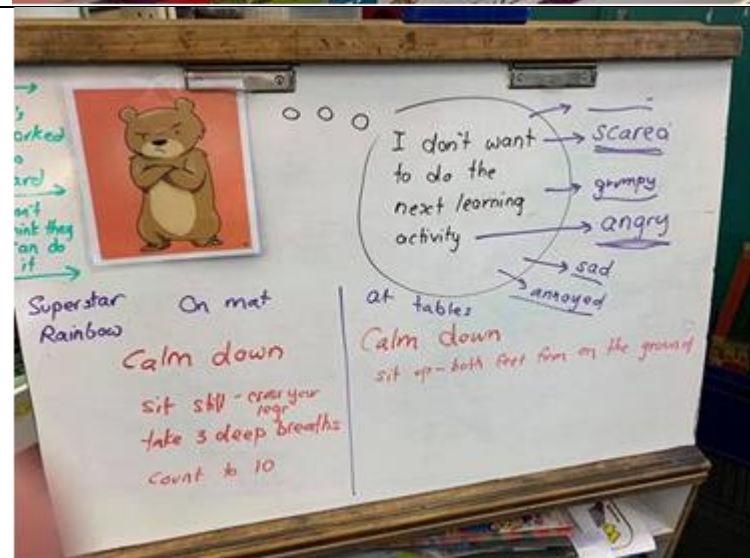 I don't want
to do the
next learning
activity
scared
grumpy
angry
sad
annoyed
Superstar
Rainbow
On mat
Calm down
sit still - cross your
legs
take 3 deep breaths
count to 10
at tables
Calm down
sit up - both feet firm on the ground